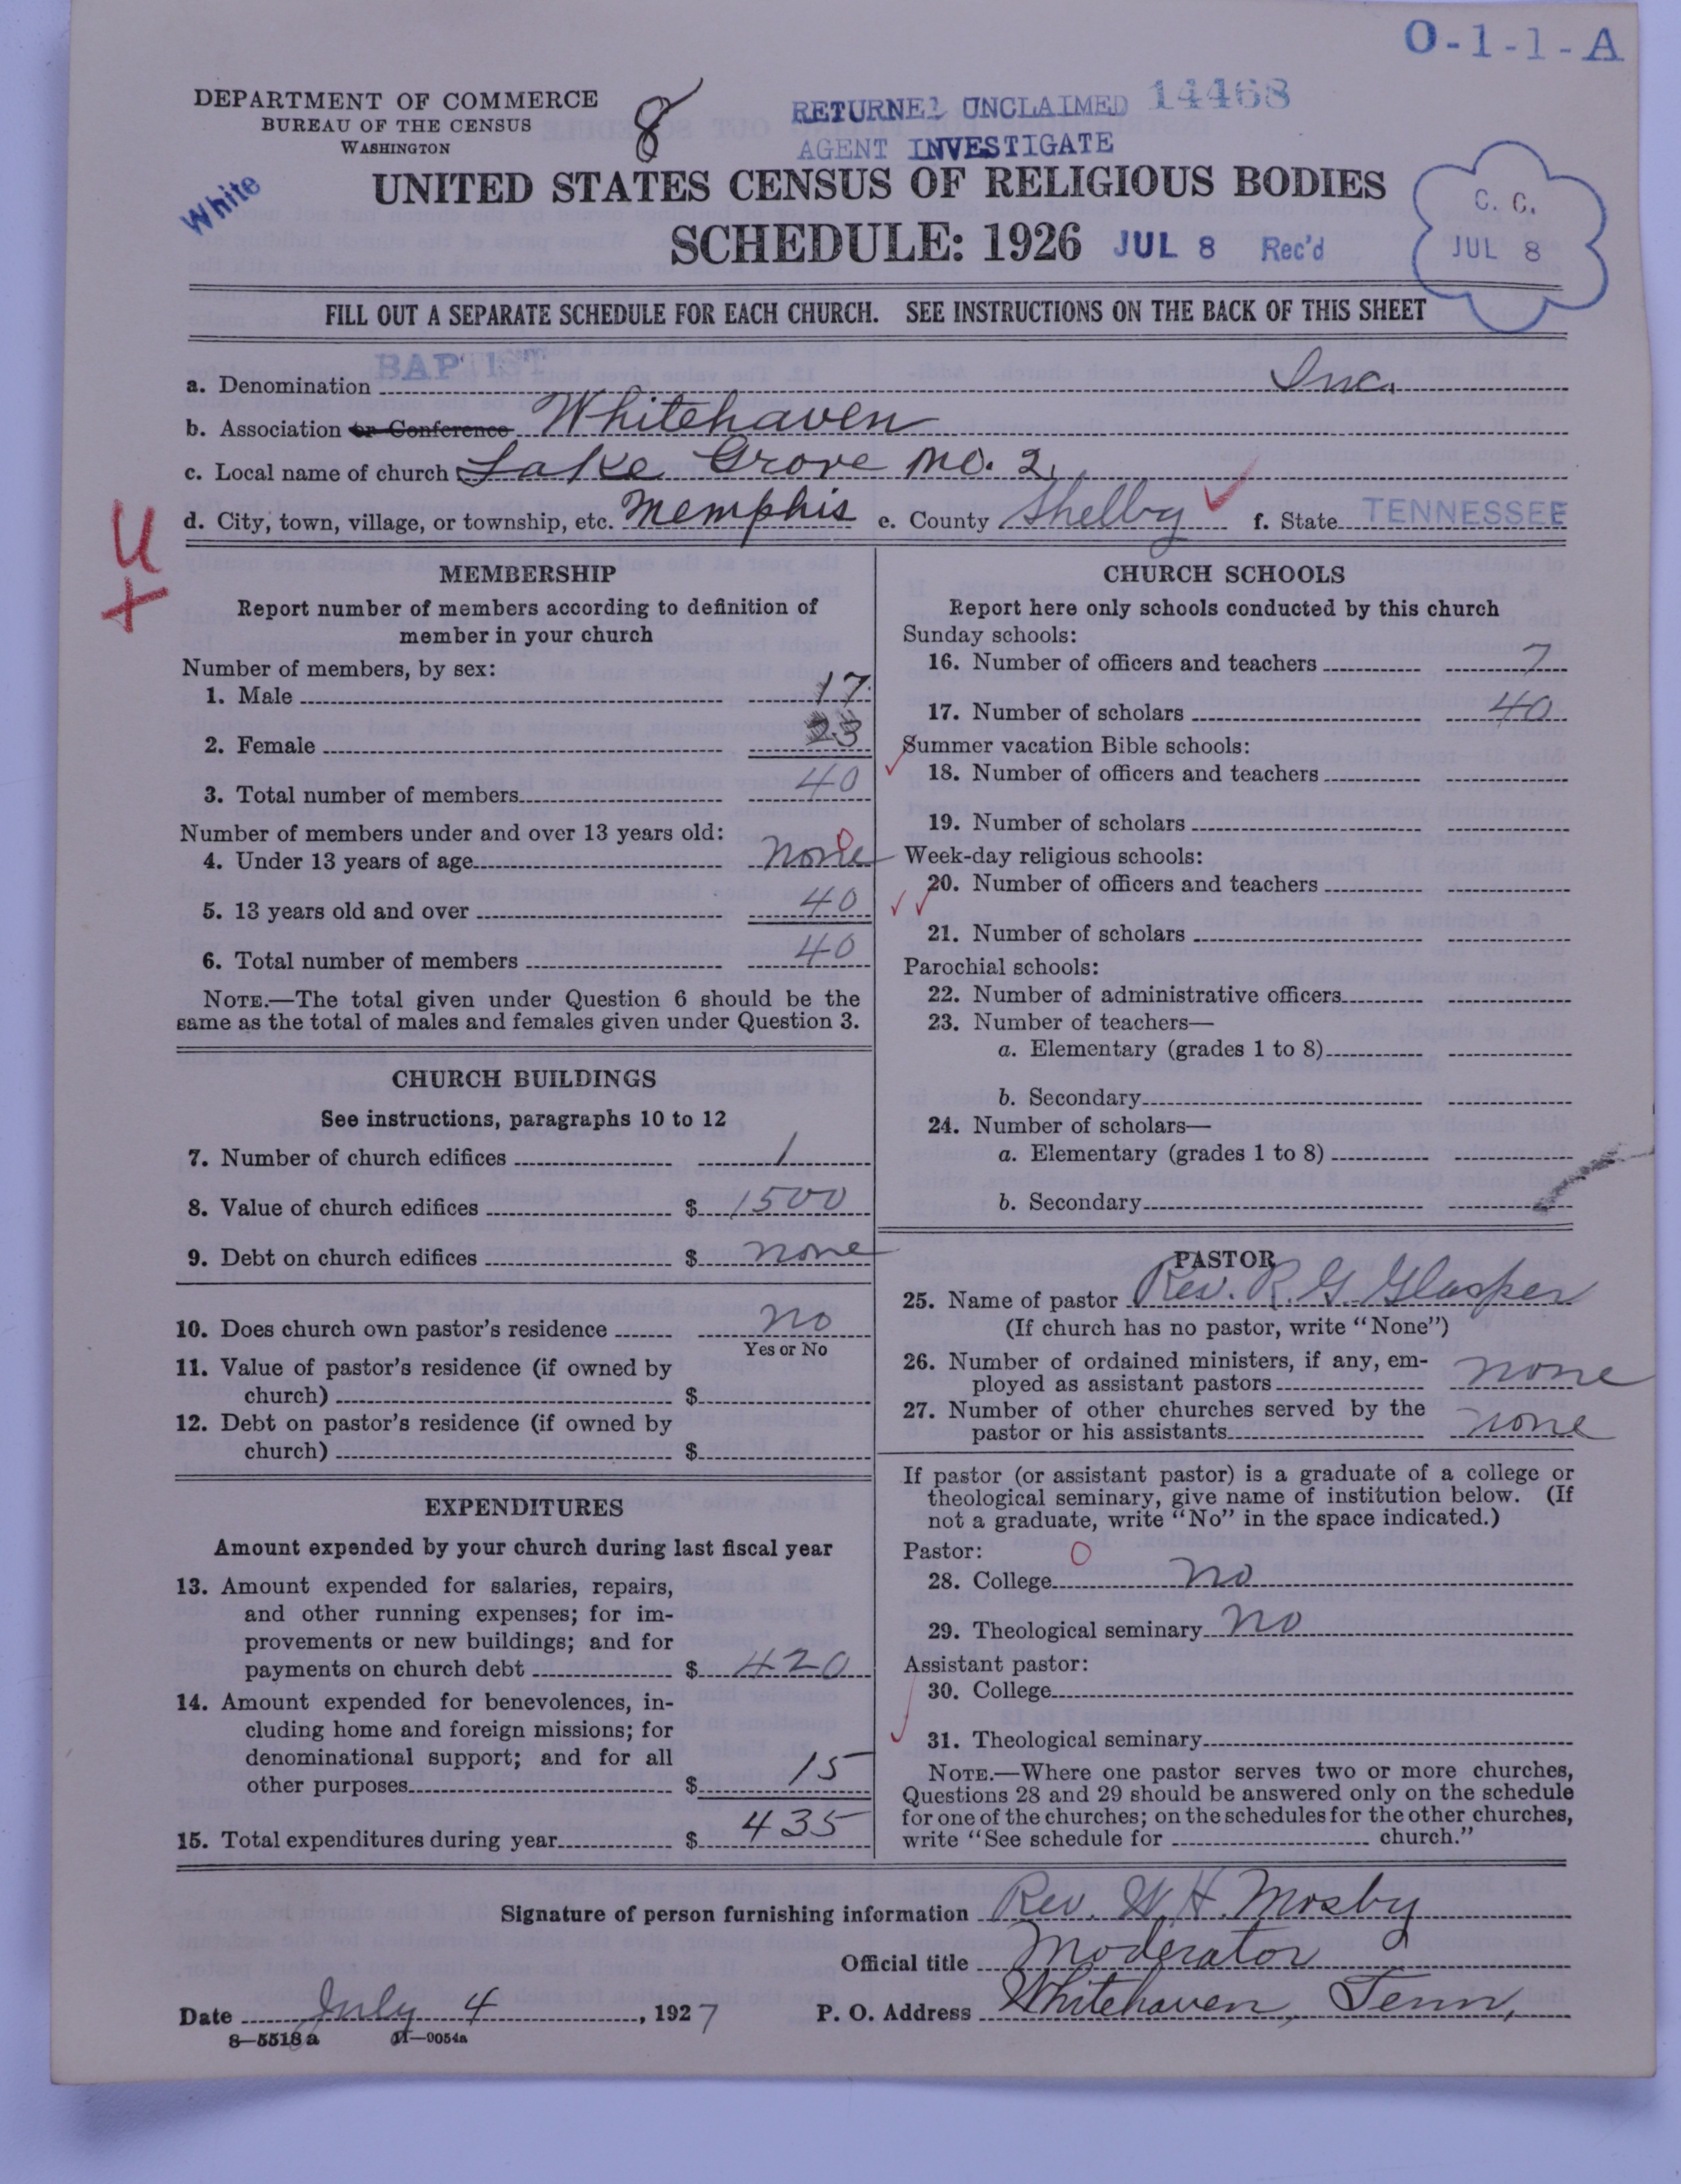 O-1-1-A
DEPARTMENT OF COMMERCE
BUREAU OF THE CENSUS
WASHINGTON
8
RETURNED UNCLAIMED 14468
AGENT INVESTIGATE
White
UNITED STATES CENSUS OF RELIGIOUS BODIES
SCHEDULE: 1926 JUL 8 Rec'd
C. C.
JUL 8
FILL OUT A SEPARATE SCHEDULE FOR EACH CHURCH. SEE INSTRUCTIONS ON THE BACK OF THIS SHEET
a. Denomination BAPTIST Inc.
b. Association or Conference Whitehaven
c. Local name of church Lake Grove No. 2.
d. City, town, village, or township, etc. Memphis e. County Shelby f. State TENNESSEE
U
+
MEMBERSHIP
Report number of members according to definition of
member in your church
Number of members, by sex:
1. Male 17
2. Female 23
3. Total number of members 40
Number of members under and over 13 years old:
4. Under 13 years of age none 0
5. 13 years old and over 40
6. Total number of members 40
NOTE.—The total given under Question 6 should be the
same as the total of males and females given under Question 3.
CHURCH BUILDINGS
See instructions, paragraphs 10 to 12
7. Number of church edifices 1
8. Value of church edifices $ 1500
9. Debt on church edifices $ none
10. Does church own pastor's residence no
Yes or No
11. Value of pastor's residence (if owned by
church) $
12. Debt on pastor's residence (if owned by
church) $
EXPENDITURES
Amount expended by your church during last fiscal year
13. Amount expended for salaries, repairs,
and other running expenses; for im-
provements or new buildings; and for
payments on church debt $ 420
14. Amount expended for benevolences, in-
cluding home and foreign missions; for
denominational support; and for all
other purposes $ 15
15. Total expenditures during year $ 435
CHURCH SCHOOLS
Report here only schools conducted by this church
Sunday schools:
16. Number of officers and teachers 7
17. Number of scholars 40
Summer vacation Bible schools:
18. Number of officers and teachers
19. Number of scholars
Week-day religious schools:
20. Number of officers and teachers
21. Number of scholars
Parochial schools:
22. Number of administrative officers
23. Number of teachers—
a. Elementary (grades 1 to 8)
b. Secondary
24. Number of scholars—
a. Elementary (grades 1 to 8)
b. Secondary
PASTOR
25. Name of pastor Rev. R G Glasper
(If church has no pastor, write "None")
26. Number of ordained ministers, if any, em-
ployed as assistant pastors none
27. Number of other churches served by the
pastor or his assistants none
If pastor (or assistant pastor) is a graduate of a college or
theological seminary, give name of institution below. (If
not a graduate, write "No" in the space indicated.)
Pastor: 0
28. College no
29. Theological seminary no
Assistant pastor:
30. College
31. Theological seminary
NOTE.—Where one pastor serves two or more churches,
Questions 28 and 29 should be answered only on the schedule
for one of the churches; on the schedules for the other churches,
write "See schedule for church."
Signature of person furnishing information Rev. W. H. Mosby
Official title Moderator
Date July 4, 1927 P. O. Address Whitehaven, Tenn,
8—5518a 11—9054a